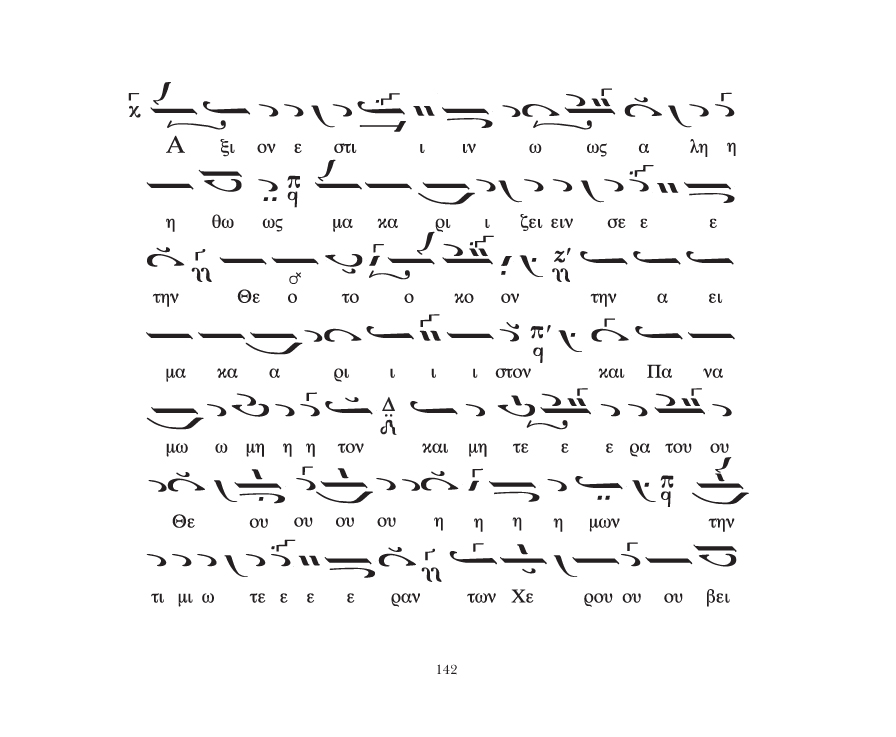 Α ξι ον ε στι ι ιν ω ως α λη η
η θω ως μα κα ρι ι ζει ειν σε ε ε
την Θε ο το ο κο ον την α ει
μα κα α ρι ι ι ι στον και Πα να
μω ω μη η η τον Δ και μη τε ε ε ρα του ου
Θε ου ου ου ου η η η η μων την
τι μι ω τε ε ε ε ραν των Χε ρου ου ου βει
142